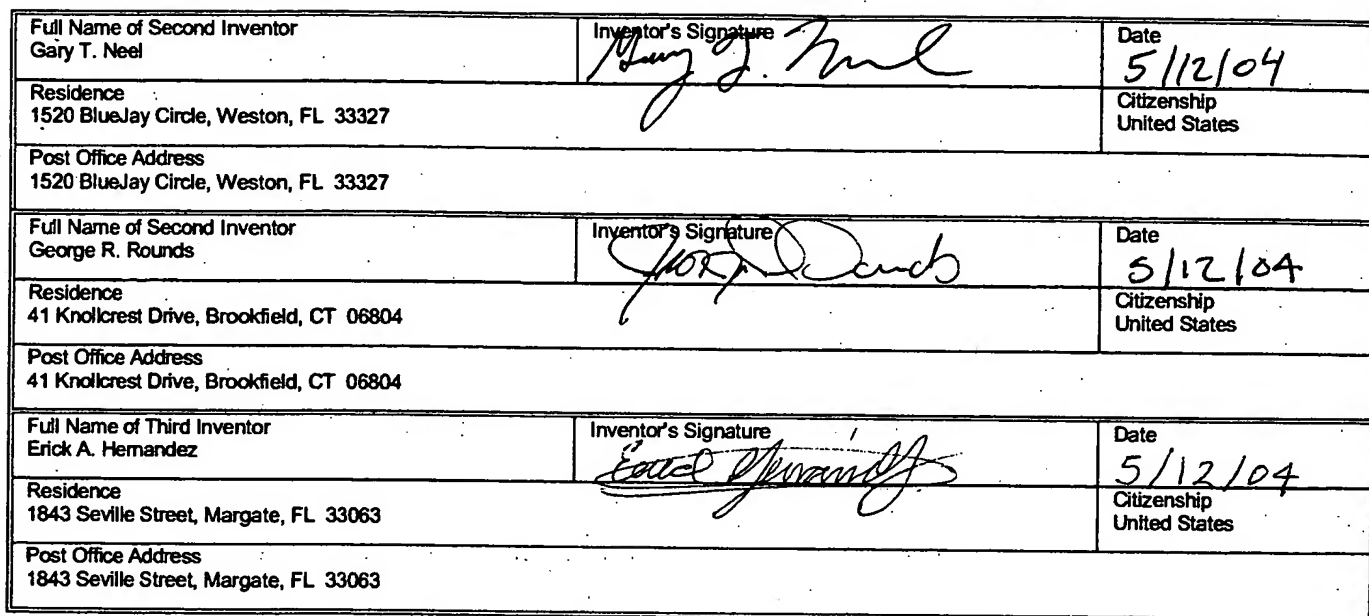 Full Name of Second Inventor
Gary T. Neel
Inventor's Signature
Gary T. Neel
Date
5/12/04
Residence
1520 BlueJay Circle, Weston, FL 33327
Citizenship
United States
Post Office Address
1520 BlueJay Circle, Weston, FL 33327
Full Name of Second Inventor
George R. Rounds
Inventor's Signature
Date
5/12/04
Residence
41 Knollcrest Drive, Brookfield, CT 06804
Citizenship
United States
Post Office Address
41 Knollcrest Drive, Brookfield, CT 06804
Full Name of Third Inventor
Erick A. Hernandez
Inventor's Signature
Erick Hernandez
Date
5/12/04
Residence
1843 Seville Street, Margate, FL 33063
Citizenship
United States
Post Office Address
1843 Seville Street, Margate, FL 33063